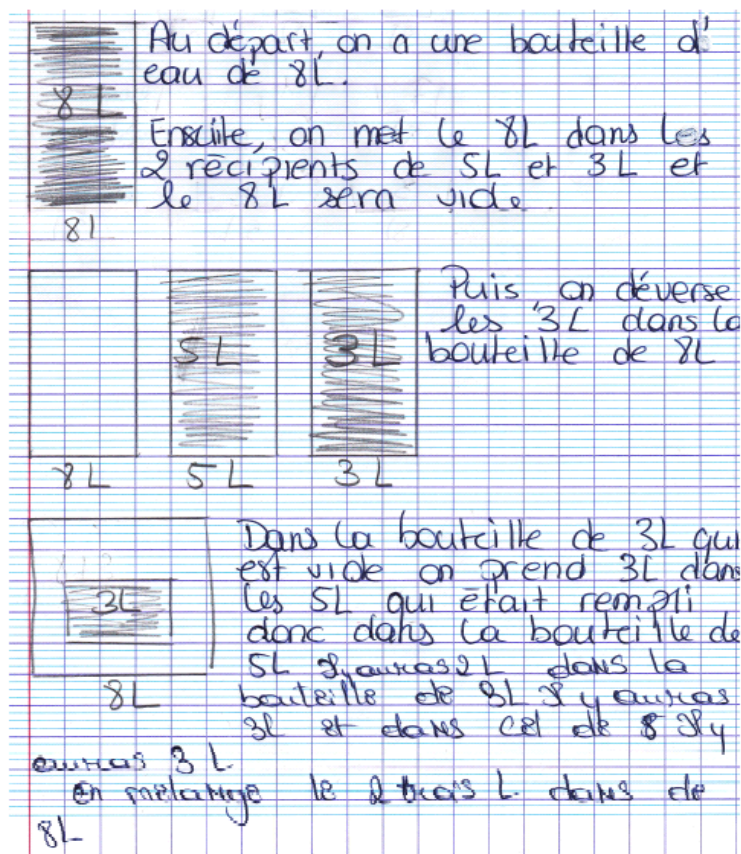 Au départ, on a une bouteille d'
eau de 8L.
8 L
Ensuite, on met le 8L dans les
2 récipients de 5L et 3L et
le 8L sera vide
8l
Puis on déverse
les 3L dans la
bouteille de 8L
5L
3L
8L
5L
3L
Dans la bouteille de 3L qui
est vide on prend 3L dans
les 5L qui était rempli
donc dans la bouteille de
5L Il y auras 2L dans la
bouteille de 3L Il y auras
3l et dans cel de 8 Il y
auras 3 L.
3L
8L
en mélange le 2 trais L. dans de
8L